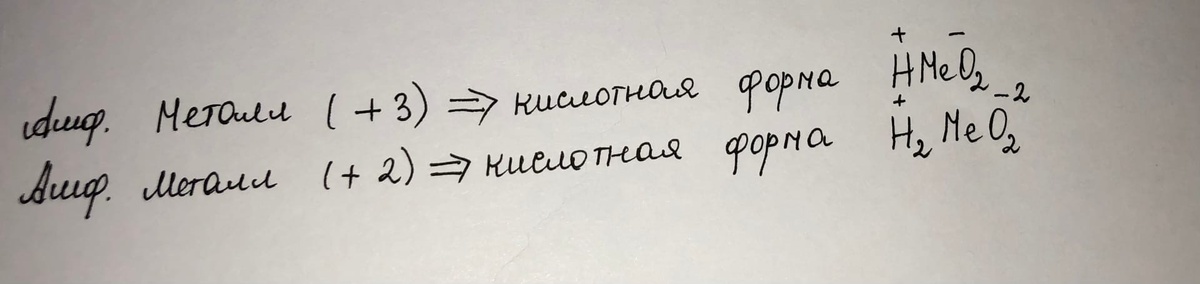 Амф. Металл (+3) ⇒ кислотная форма H⁺MeO₂⁻
Амф. Металл (+2) ⇒ кислотная форма H₂⁺MeO₂⁻²